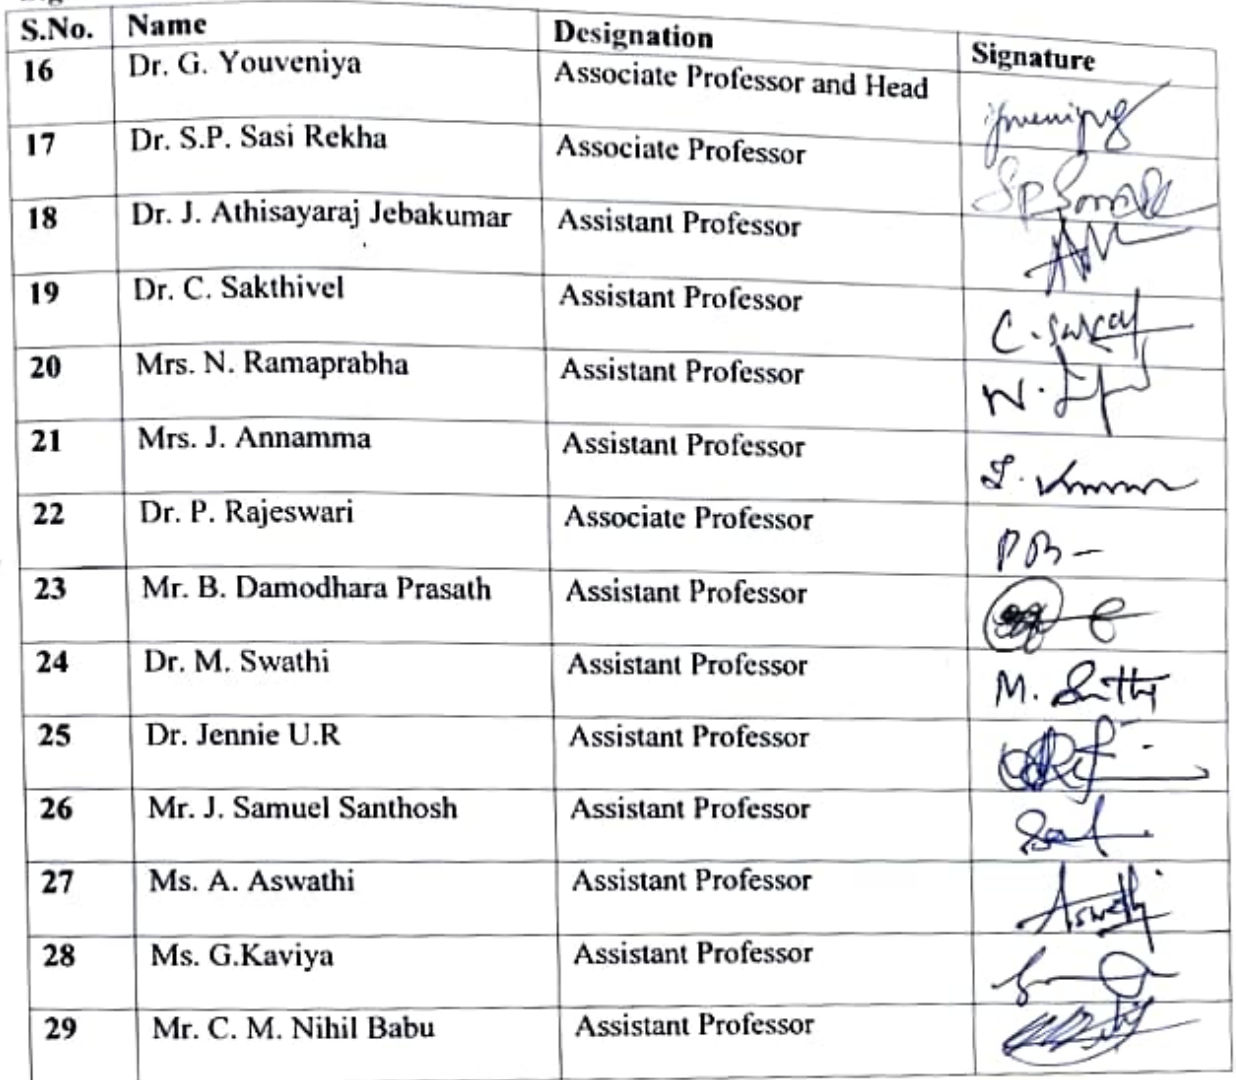 S.No. Name Designation Signature
16 Dr. G. Youveniya Associate Professor and Head
17 Dr. S.P. Sasi Rekha Associate Professor
18 Dr. J. Athisayaraj Jebakumar Assistant Professor
19 Dr. C. Sakthivel Assistant Professor
20 Mrs. N. Ramaprabha Assistant Professor
21 Mrs. J. Annamma Assistant Professor
22 Dr. P. Rajeswari Associate Professor
23 Mr. B. Damodhara Prasath Assistant Professor
24 Dr. M. Swathi Assistant Professor
25 Dr. Jennie U.R Assistant Professor
26 Mr. J. Samuel Santhosh Assistant Professor
27 Ms. A. Aswathi Assistant Professor
28 Ms. G.Kaviya Assistant Professor
29 Mr. C. M. Nihil Babu Assistant Professor